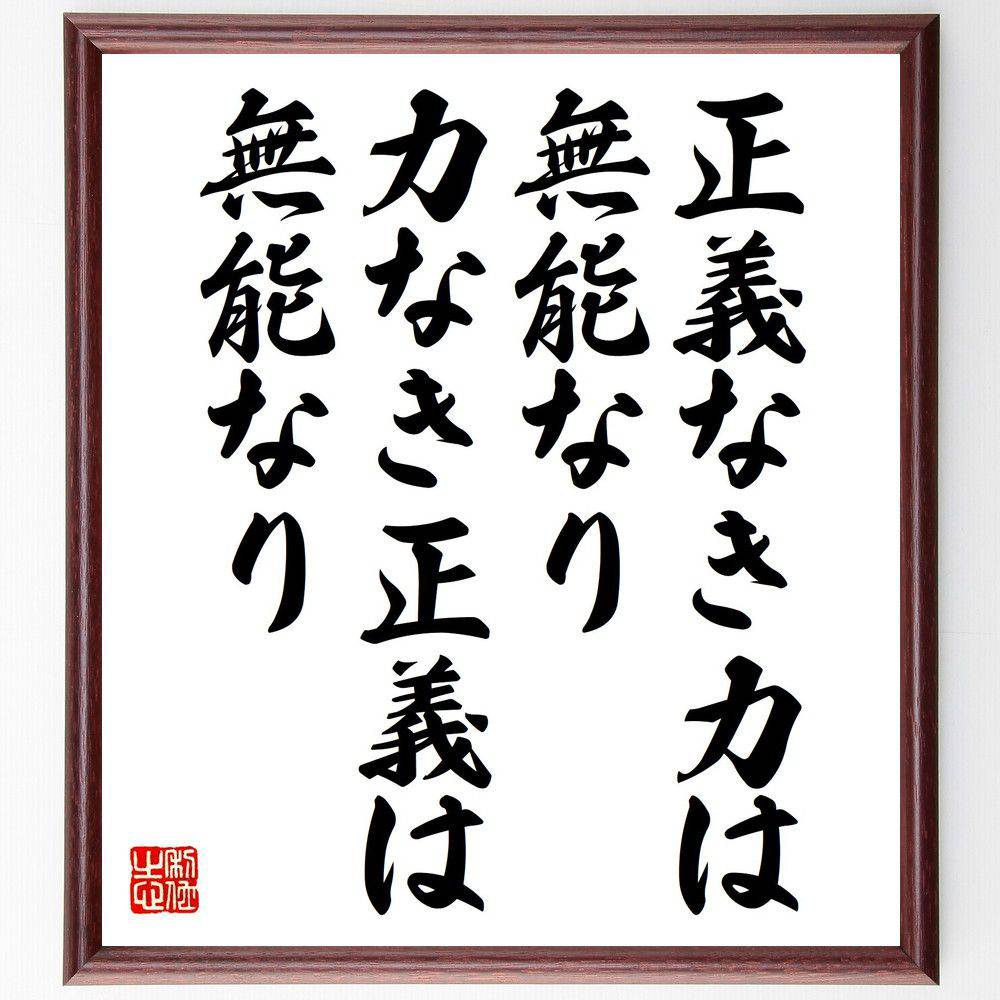 正義なき力は
無能なり
力なき正義は
無能なり